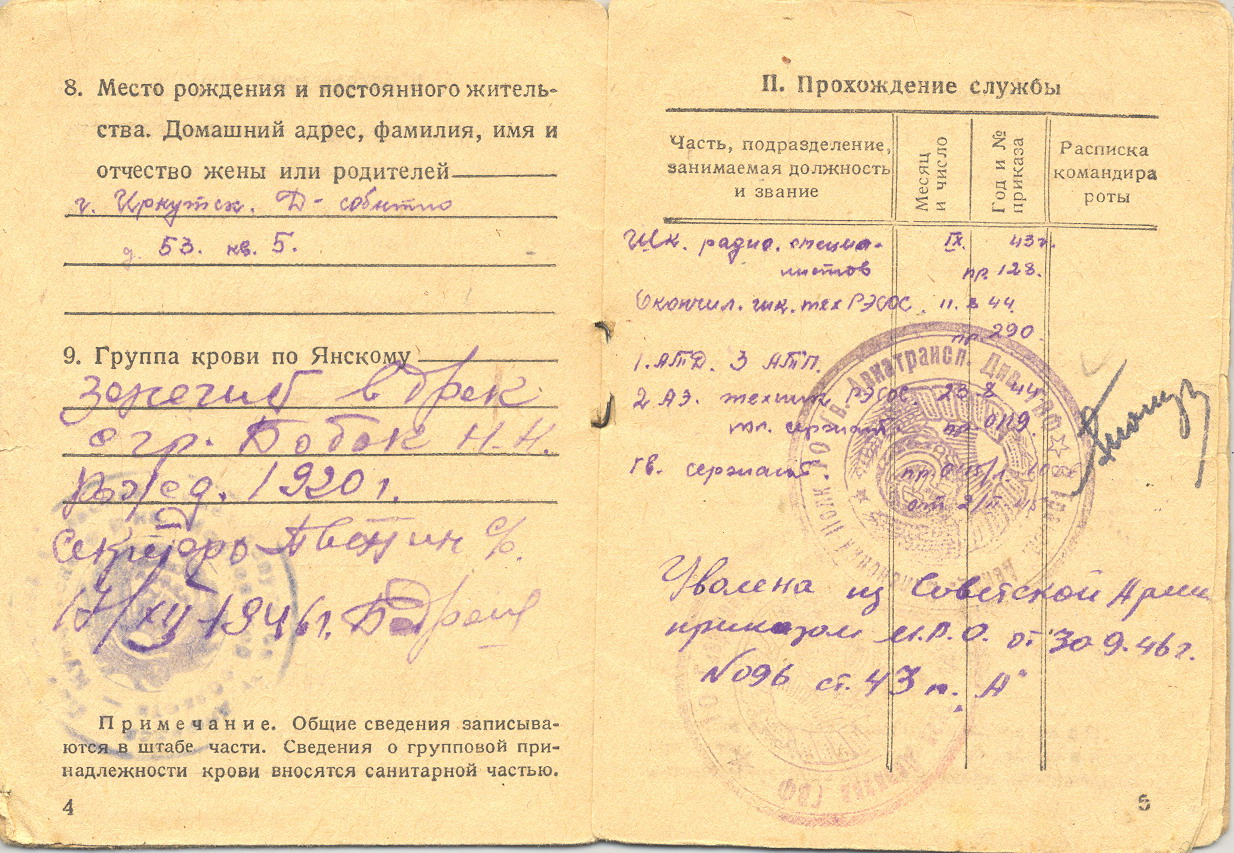 8. Место рождения и постоянного житель-
ства. Домашний адрес, фамилия, имя и
отчество жены или родителей
г. Иркутск. Д-события
д. 53. кв. 5.
9. Группа крови по Янскому
в брак
с гр. Бобок Н.Н.
рожд. 1920 г.
Секретарь
17/XII-1946 г.
Примечание. Общие сведения записыва-
ются в штабе части. Сведения о групповой при-
надлежности крови вносятся санитарной частью.
4
II. Прохождение службы
Часть, подразделение, занимаемая должность и звание
Месяц и число
Год и № приказа
Расписка командира роты
Шк. радио. специа- IX. 43 г.
листов пр. 128.
Окончил. шк. тех РЭСОС. 11. 8 44.
пр. 290.
1. АТД. 3 АТП.
2 АЭ. техник РЭСОС. 23-8 44
мл. сержант. пр. 0119.
гв. сержант
Авиатрансп. Див.
Уволена из Советской Армии
приказом от 30 9. 46 г.
№ 096 ст. 43 п. "А"
5